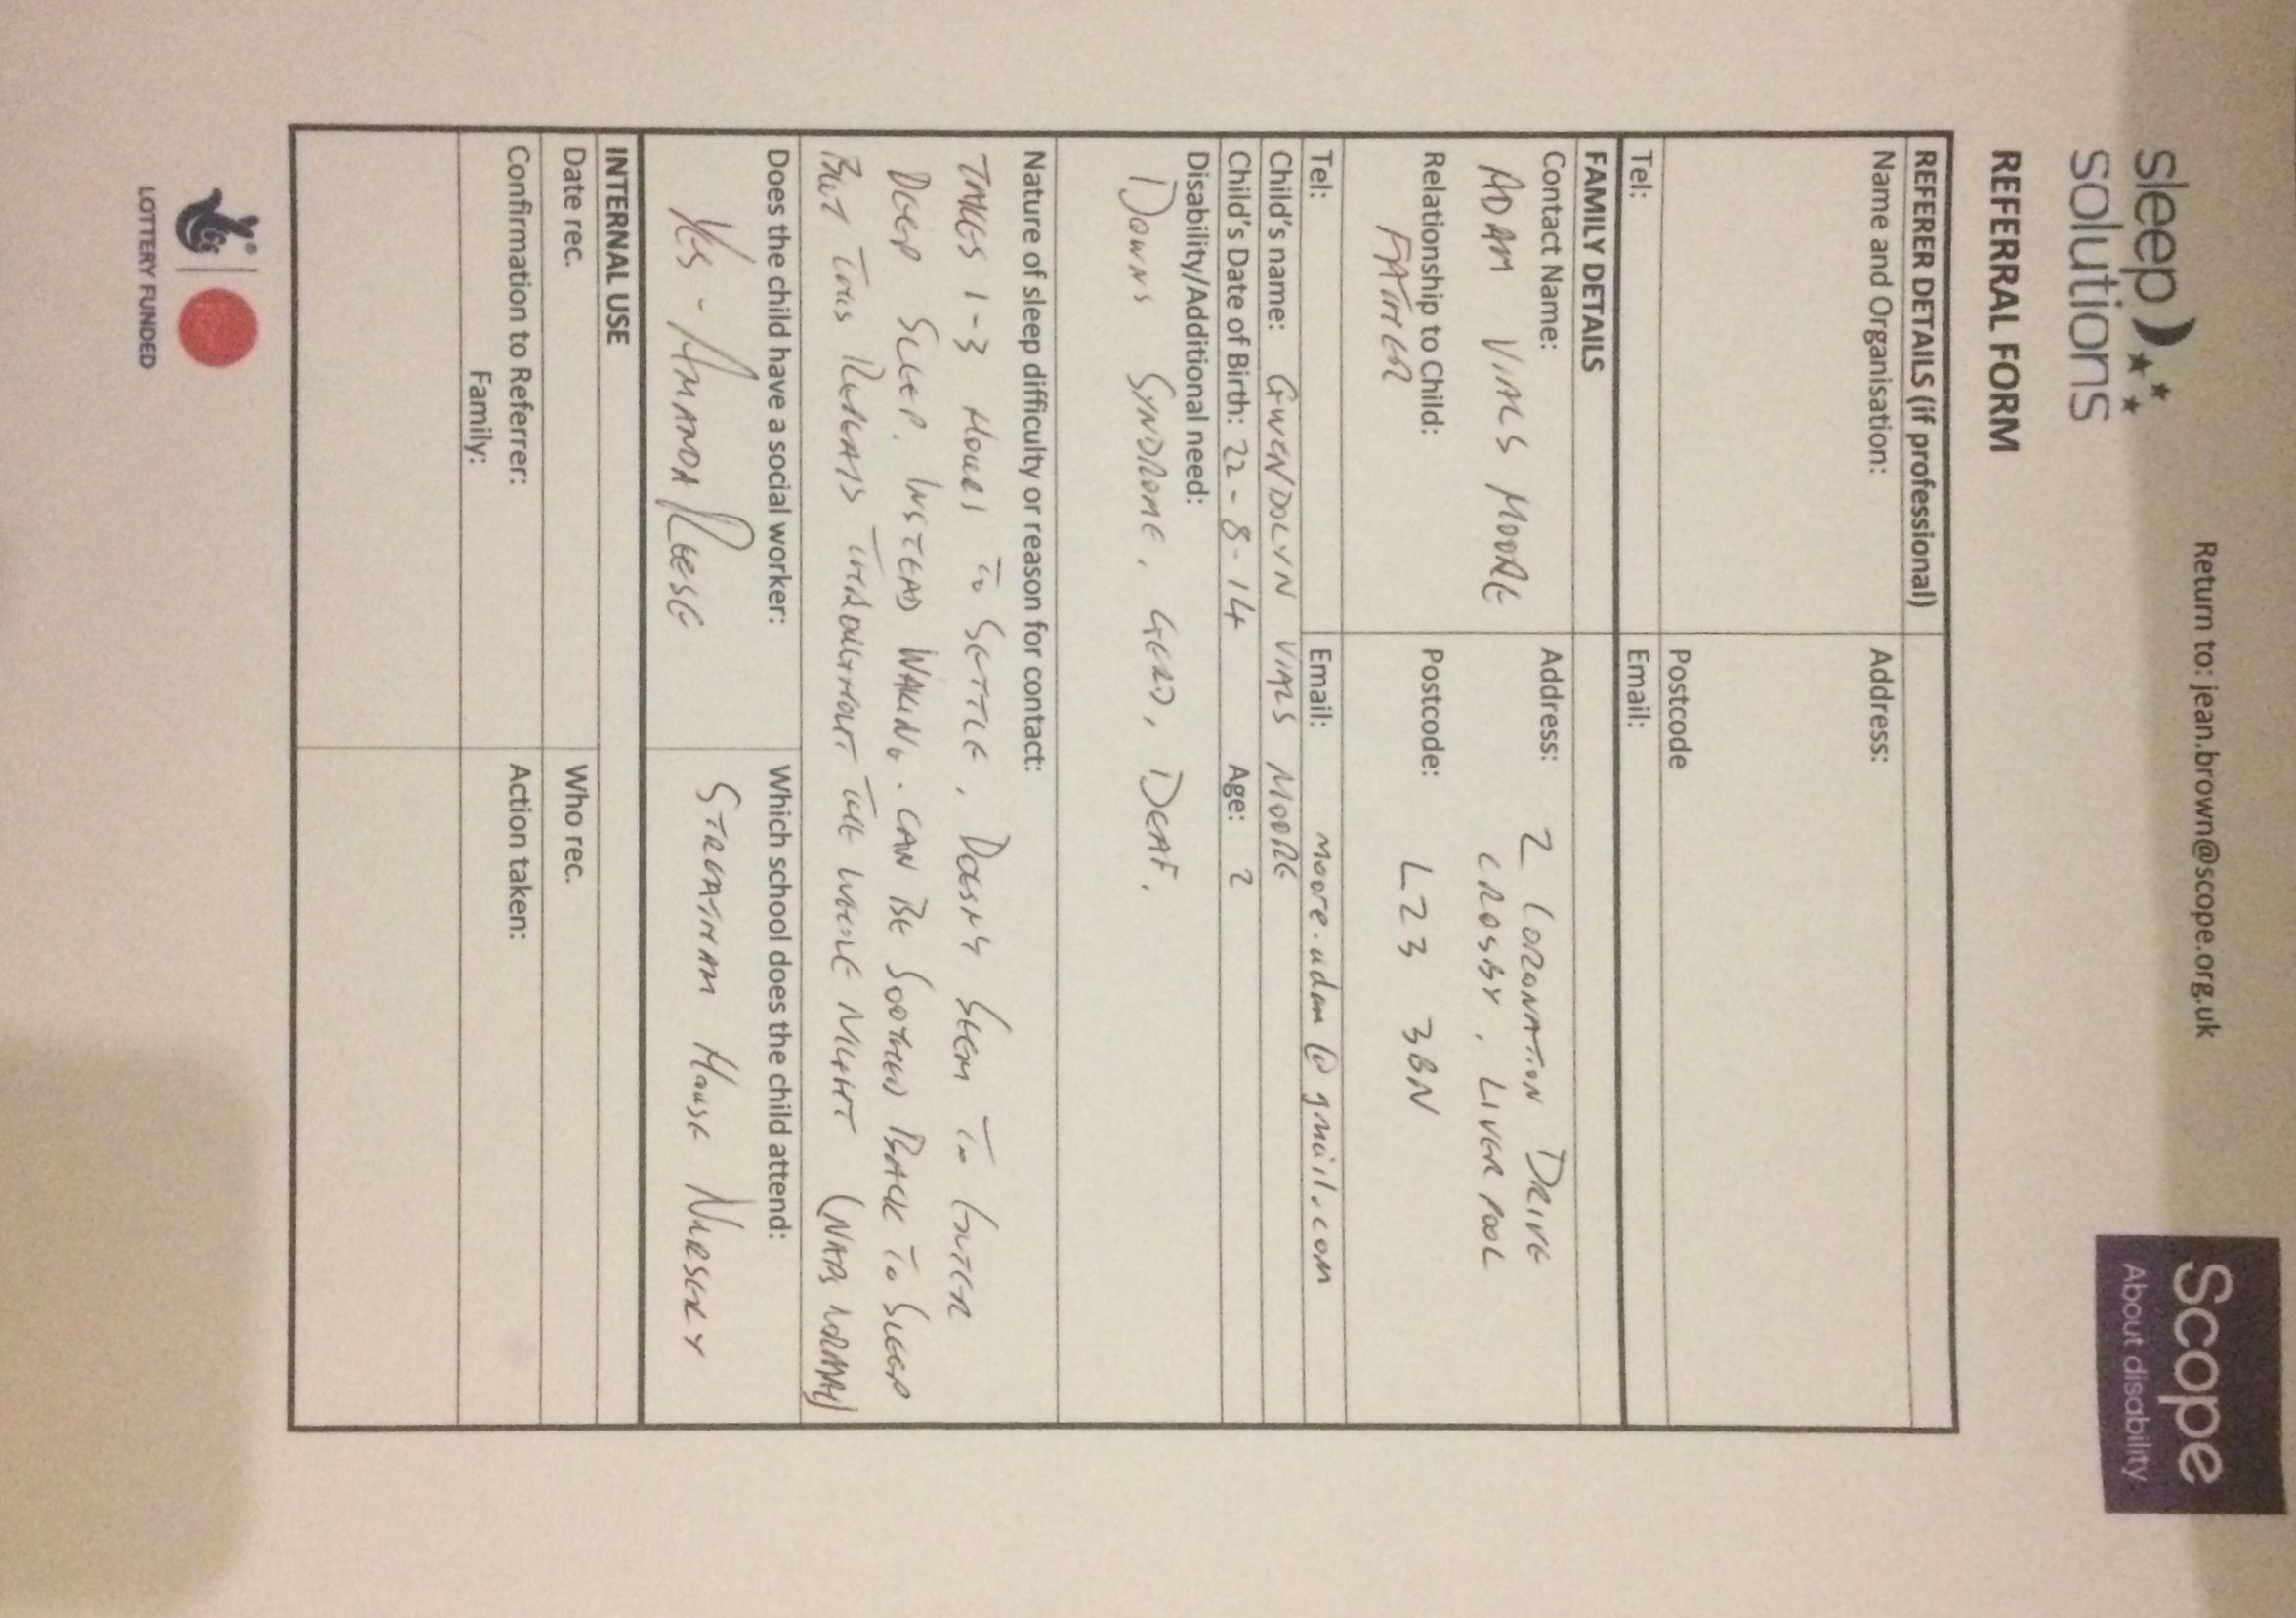 Return to: jean.brown@scope.org.uk
sleep
solutions
Scope
About disability
REFERRAL FORM
REFERER DETAILS (if professional)
Name and Organisation:
Address:
Postcode
Tel:
Email:
FAMILY DETAILS
Contact Name:
ADAM VIALS MOORE
Address: 2 CORONATION DRIVE
CROSBY, LIVERPOOL
Relationship to Child:
FATHER
Postcode: L23 3BN
Tel:
Email: moore.adam@gmail.com
Child's name: GWENDOLYN VIALS MOORE
Child's Date of Birth: 22-8-14 Age: 2
Disability/Additional need:
DOWNS SYNDROME, GERD, DEAF.
Nature of sleep difficulty or reason for contact:
TAKES 1-3 HOURS TO SETTLE, DOESN'T SEEM TO ENTER
DEEP SLEEP. INSTEAD WAKING. CAN BE SOOTHED BACK TO SLEEP
BUT THIS REPEATS THROUGHOUT THE WHOLE NIGHT (NAPS NORMAL)
Does the child have a social worker:
YES - AMANDA REESE
Which school does the child attend:
STREATHAM HOUSE NURSERY
INTERNAL USE
Date rec.
Who rec.
Confirmation to Referrer:
Family:
Action taken:
LOTTERY FUNDED